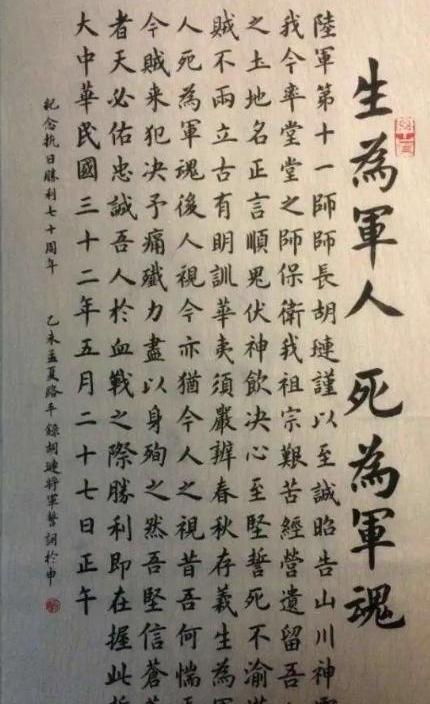 生為軍人 死為軍魂
陸軍第十一師師長胡璉謹以至誠昭告山川神
我今率堂堂之師保衛我祖宗艱苦經營遺留吾
之土地名正言順鬼伏神飲决心至堅誓死不渝
賊不兩立古有明訓華夷須嚴辨春秋存義生為軍
人死為軍魂後人視今亦猶今人之視昔吾何惴
今賊来犯决予痛殲力盡以身殉之然吾堅信蒼
者天必佑忠誠吾人於血戰之際勝利即在握此
大中華民國三十二年五月二十七日正午
紀念抗日勝利七十周年 乙未孟夏路平録胡璉將軍誓詞於申